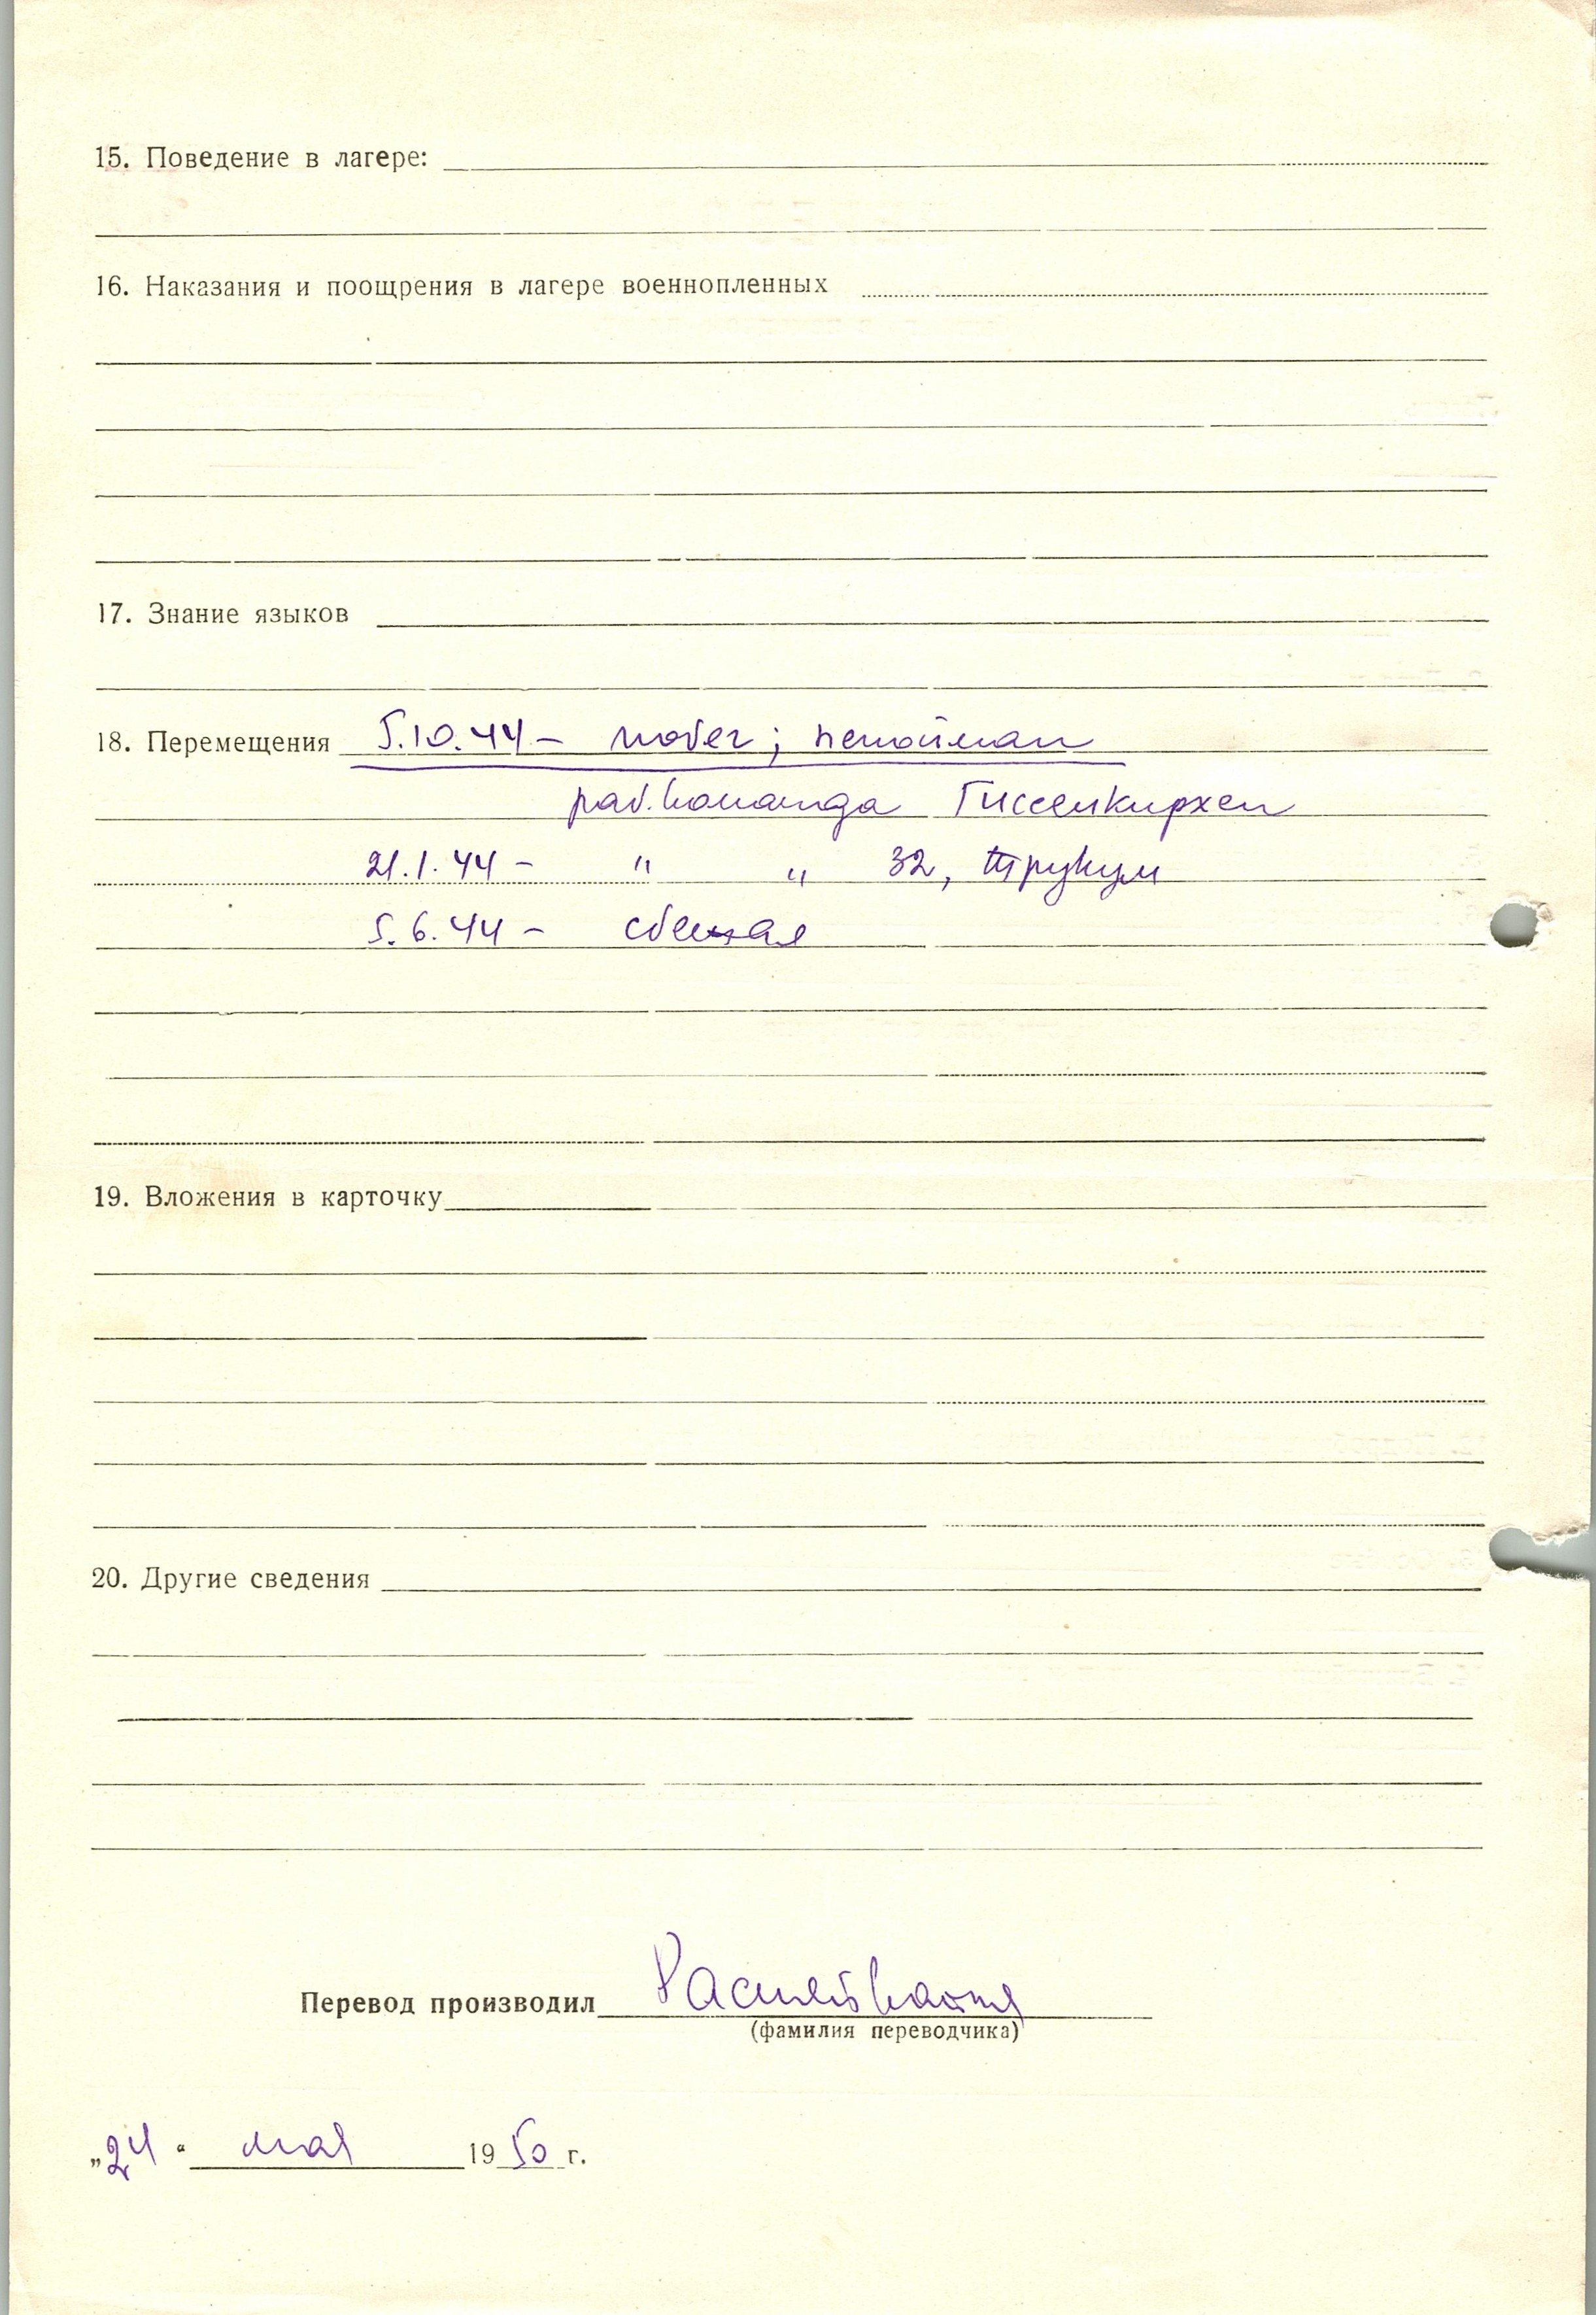 15. Поведение в лагере:
16. Наказания и поощрения в лагере военнопленных
17. Знание языков
18. Перемещения 5.10.44 – побег; непойман
раб. команда Гиссенкирхен
21.1.44 – " " 32,
5.6.44 – сбежал
19. Вложения в карточку
20. Другие сведения
Перевод производил
(фамилия переводчика)
„24“ мая 1950 г.